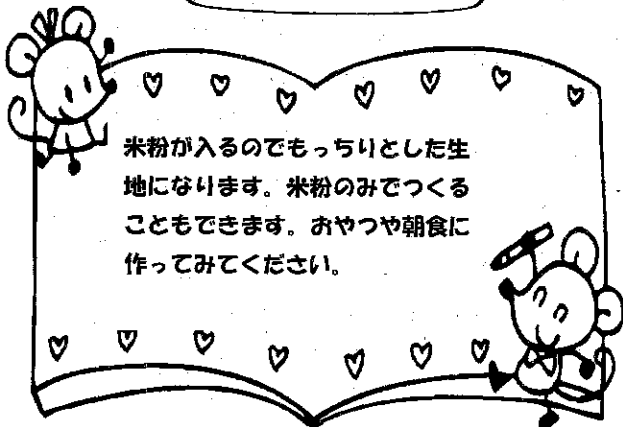 米粉が入るのでもっちりとした生
地になります。米粉のみでつくる
こともできます。おやつや朝食に
作ってみてください。